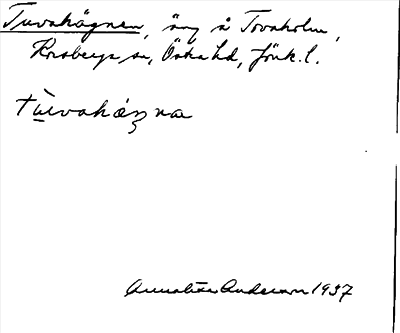 Tuvahägnen, äng å Tovaholm,
Rosberga sn, Östra hd, Jönk. l.
tu̲evahæŋna
Annalisa Anderson 1937